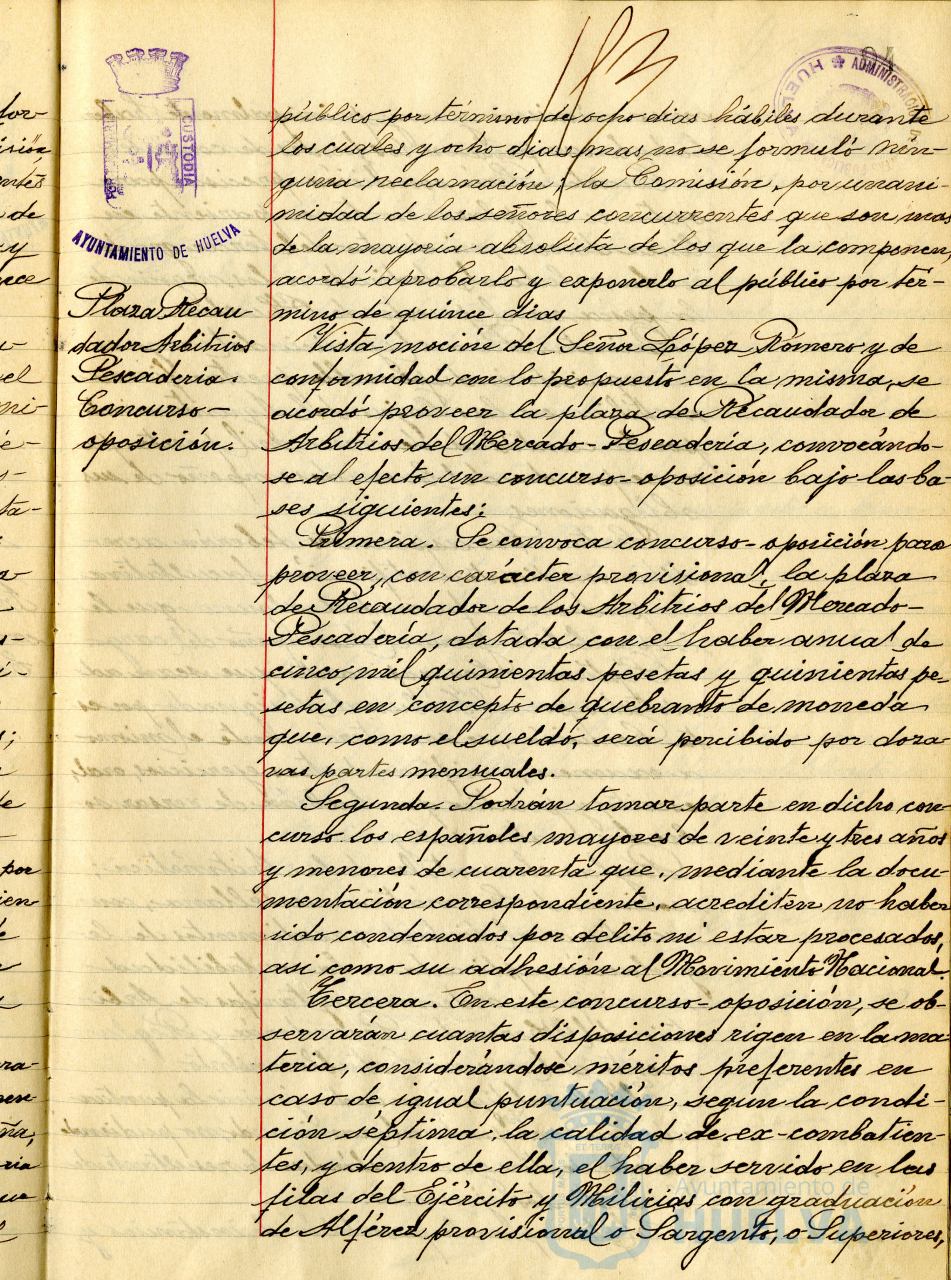 183
94
HUELVA * ADMINISTRACION
PORTUS MARIS ET TERRAE CUSTODIA
AYUNTAMIENTO DE HUELVA
Plaza Recau
dador Arbitrios
Pescaderia.
Concurso-
oposición.
público por término de ocho dias hábiles durante
los cuales y ocho dias mas no se formuló nin-
guna reclamación, la Comisión, por unani
midad de los señores concurrentes que son mas
de la mayoria absoluta de los que la componen,
acordó aprobarlo y exponerlo al público por tér-
mino de quince dias
Vista moción del Señor López Romero y de
conformidad con lo propuesto en la misma, se
acordó proveer la plaza de Recaudador de
Arbitrios del Mercado-Pescadería, convocándo-
se al efecto, un concurso-oposición bajo las ba
ses siguientes:
Primera. Se convoca concurso-oposición para
proveer, con carácter provisional, la plaza
de Recaudador de los Arbitrios del Mercado-
Pescadería, dotada con el haber anual de
cinco mil quinientas pesetas y quinientas pe-
setas en concepto de quebranto de moneda
que, como el sueldo, será percibido por doza
vas partes mensuales.
Segunda. Podrán tomar parte en dicho con-
curso los españoles mayores de veinte y tres años
y menores de cuarenta que, mediante la docu-
mentación correspondiente, acrediten no haber
sido condenados por delito ni estar procesados,
asi como su adhesión al Movimiento Nacional.
Tercera. En este concurso-oposición, se ob-
servarán cuantas disposiciones rigen en la ma
teria, considerándose méritos preferentes en
caso de igual puntuación, segun la condi-
ción séptima, la calidad de ex-combatien-
tes, y dentro de ella, el haber servido en las
filas del Ejército y Milicias con graduación
de Alférez provisional o Sargento, o Superiores,
Ayuntamiento de
HUELVA